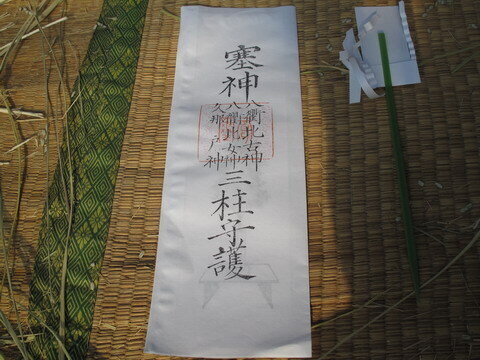 塞神
八衢比古神
八衢比女神
久那戸神
三柱守護